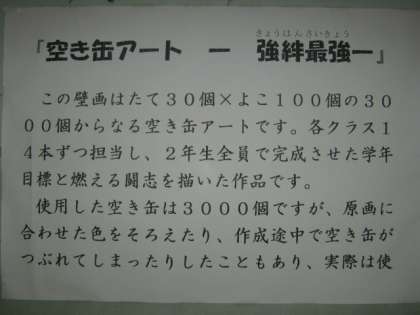 きょうはんさいきょう
『空き缶アート　ー　強絆最強ー』
　この壁画はたて３０個×よこ１００個の３０
００個からなる空き缶アートです。各クラス１
４本ずつ担当し、２年生全員で完成させた学年
目標と燃える闘志を描いた作品です。
　使用した空き缶は３０００個ですが、原画に
合わせた色をそろえたり、作成途中で空き缶が
つぶれてしまったりしたこともあり、実際は使